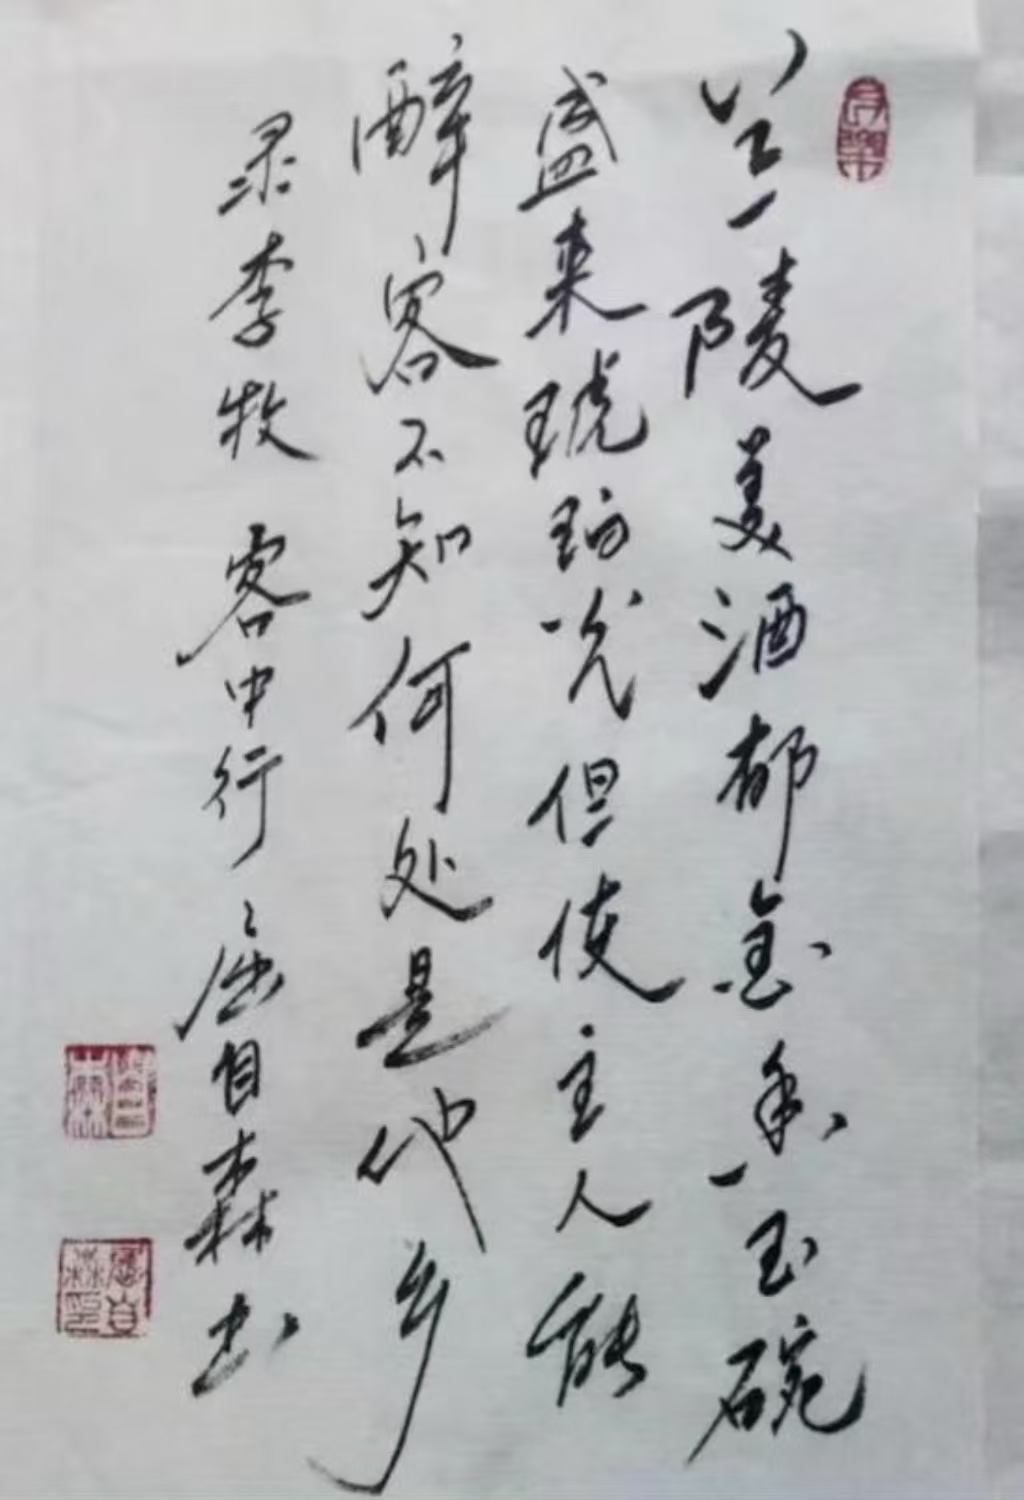 兰陵美酒郁金香玉碗
盛来琥珀光但使主人能
醉客不知何处是他乡
录李牧 客中行 屈自森书
屈自森印